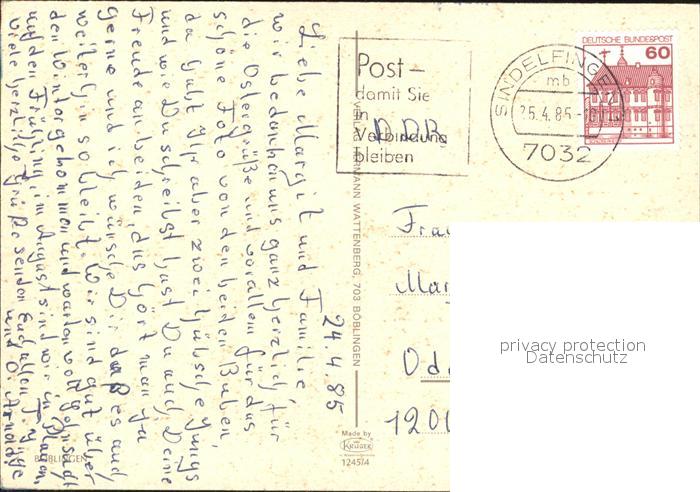 24.4.85
Liebe Margit und Familie,
wir bedanken uns ganz herzlich, für
die Ostergrüße und vorallem für das
schöne Foto von den beiden Buben,
da habt Ihr aber zwei hübsche Jungs
und wie Du schreibst hast Du auch Deine
Freude an beiden, das hört man ja
gerne und ich wünsche Dir daß es auch
weiterhin so bleibt. Wir sind gut über
den Winter gekommen und warten voll Sehnsucht
auf den Frühling, im August sind wir in Plauen,
viele herzliche Grüße senden Euch allen
und
BÖBLINGEN
Post-
damit Sie
in
Verbindung
bleiben
DDR
SINDELFINGEN
mb
25.4.85
7032
DEUTSCHE BUNDESPOST
60
VERLAG HERMANN WATTENBERG, 703 BÖBLINGEN
Made by
KRÜGER
1245/4
Frau
Mar
Od
1200
privacy protection
Datenschutz